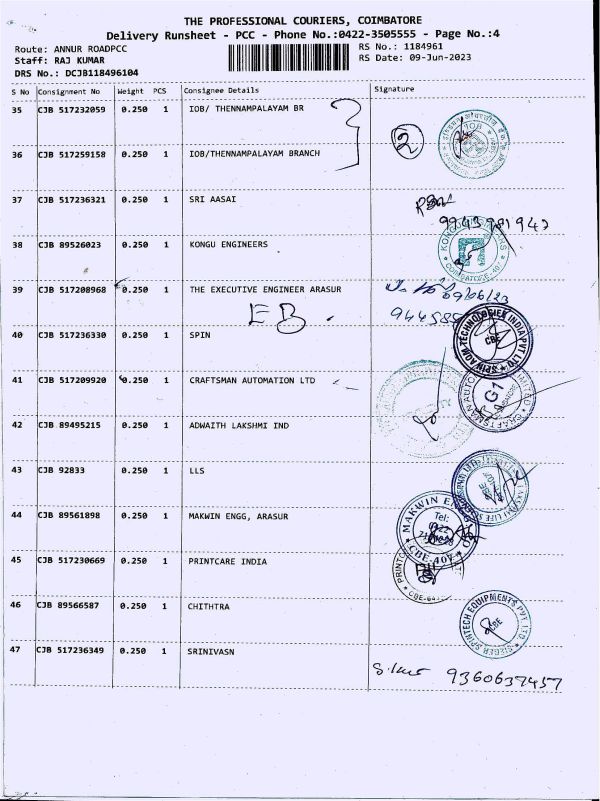 THE PROFESSIONAL COURIERS, COIMBATORE
Delivery Runsheet - PCC - Phone No.:0422-3505555 - Page No.:4
Route: ANNUR ROADPCC RS No.: 1184961
Staff: RAJ KUMAR RS Date: 09-Jun-2023
DRS No.: DCJB118496104
S No Consignment No Weight PCS Consignee Details Signature
35 CJB 517232059 0.250 1 IOB/ THENNAMPALAYAM BR
2
IOB
36 CJB 517259158 0.250 1 IOB/THENNAMPALAYAM BRANCH
37 CJB 517236321 0.250 1 SRI AASAI
38 CJB 89526023 0.250 1 KONGU ENGINEERS
39 CJB 517208968 0.250 1 THE EXECUTIVE ENGINEER ARASUR
09/06/23
EB
40 CJB 517236330 0.250 1 SPIN
CBE
41 CJB 517209920 0.250 1 CRAFTSMAN AUTOMATION LTD
G1
42 CJB 89495215 0.250 1 ADWAITH LAKSHMI IND
43 CJB 92833 0.250 1 LLS
44 CJB 89561898 0.250 1 MAKWIN ENGG, ARASUR
MAKWIN ENGG
Tel:
0422
CBE-407
45 CJB 517230669 0.250 1 PRINTCARE INDIA
46 CJB 89566587 0.250 1 CHITHTRA
SIEGER SPINTECH EQUIPMENTS PVT. LTD.
CBE
47 CJB 517236349 0.250 1 SRINIVASN
9360637457